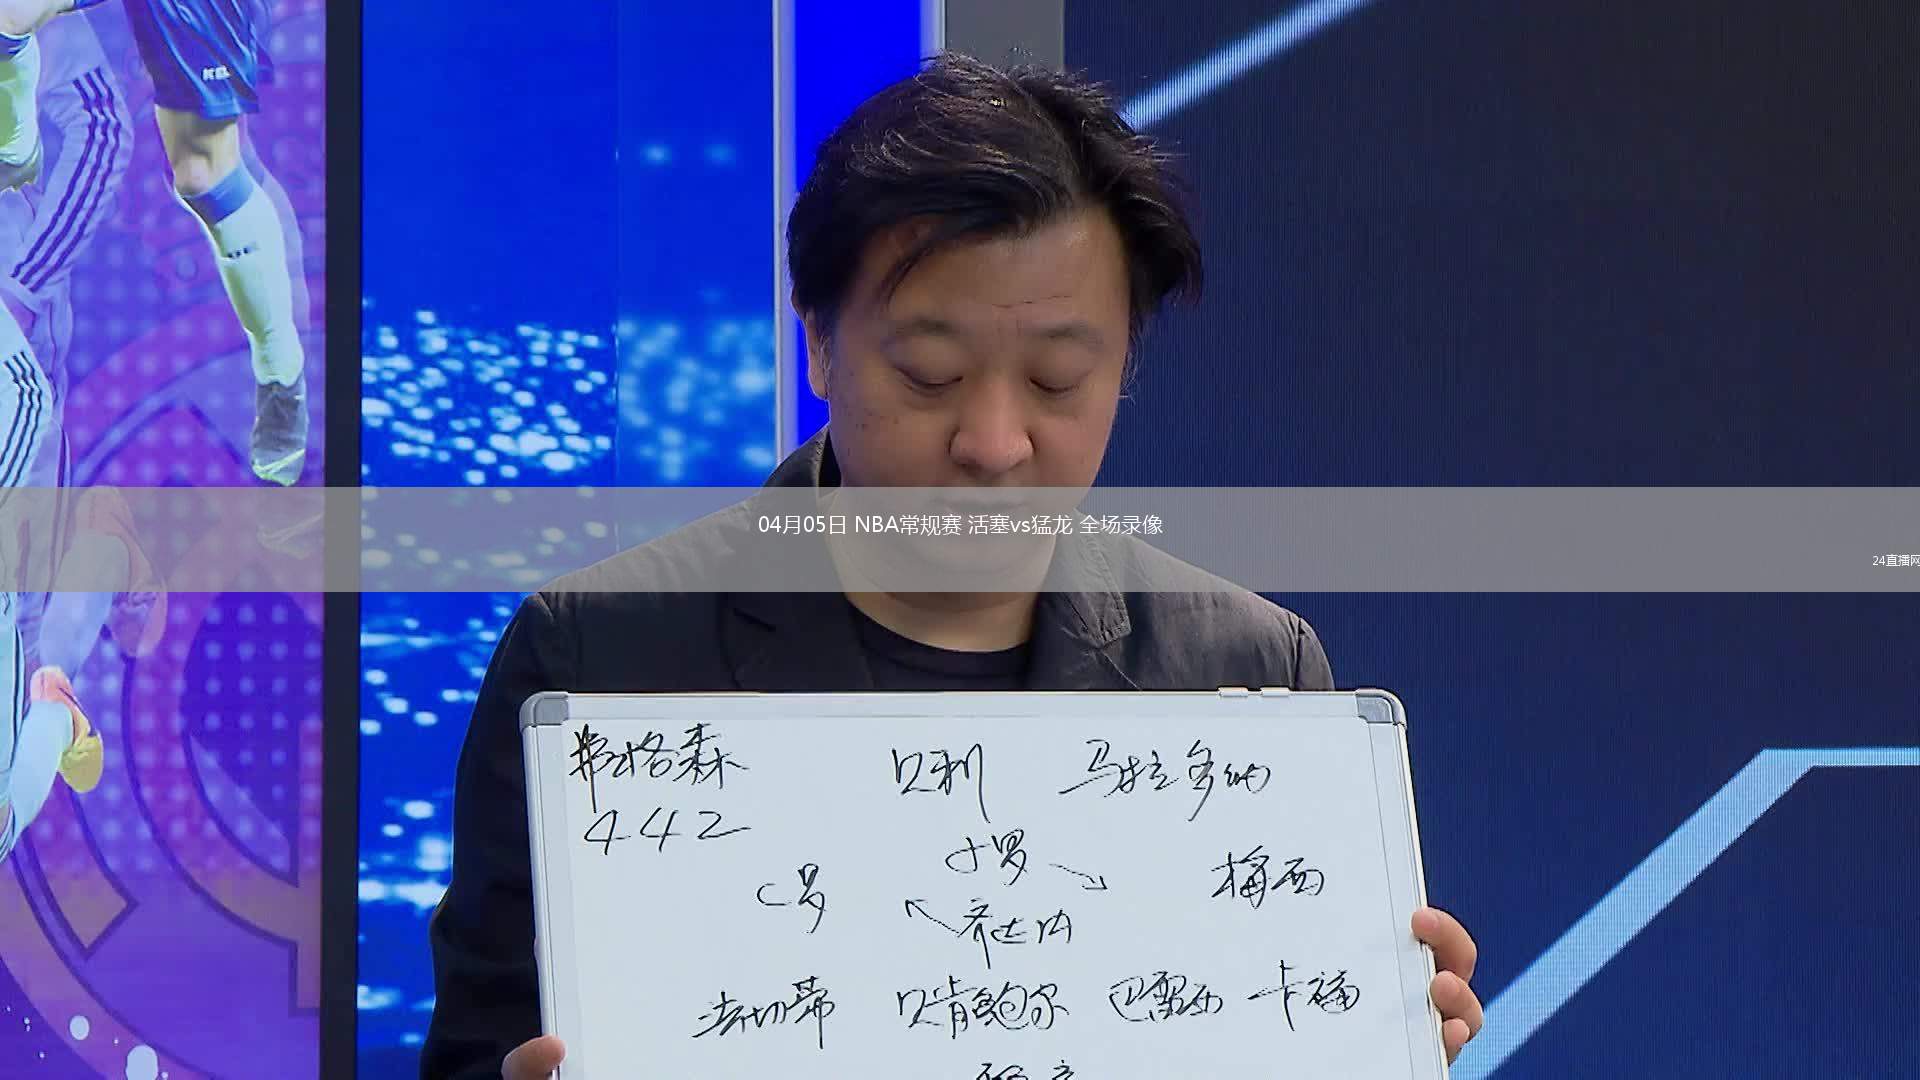 04月05日 NBA常规赛 活塞vs猛龙 全场录像
24直播网
弗格森 贝利 马拉多纳
442
小罗
C罗 梅西
齐达内
法切蒂 贝肯鲍尔 巴雷西 卡福